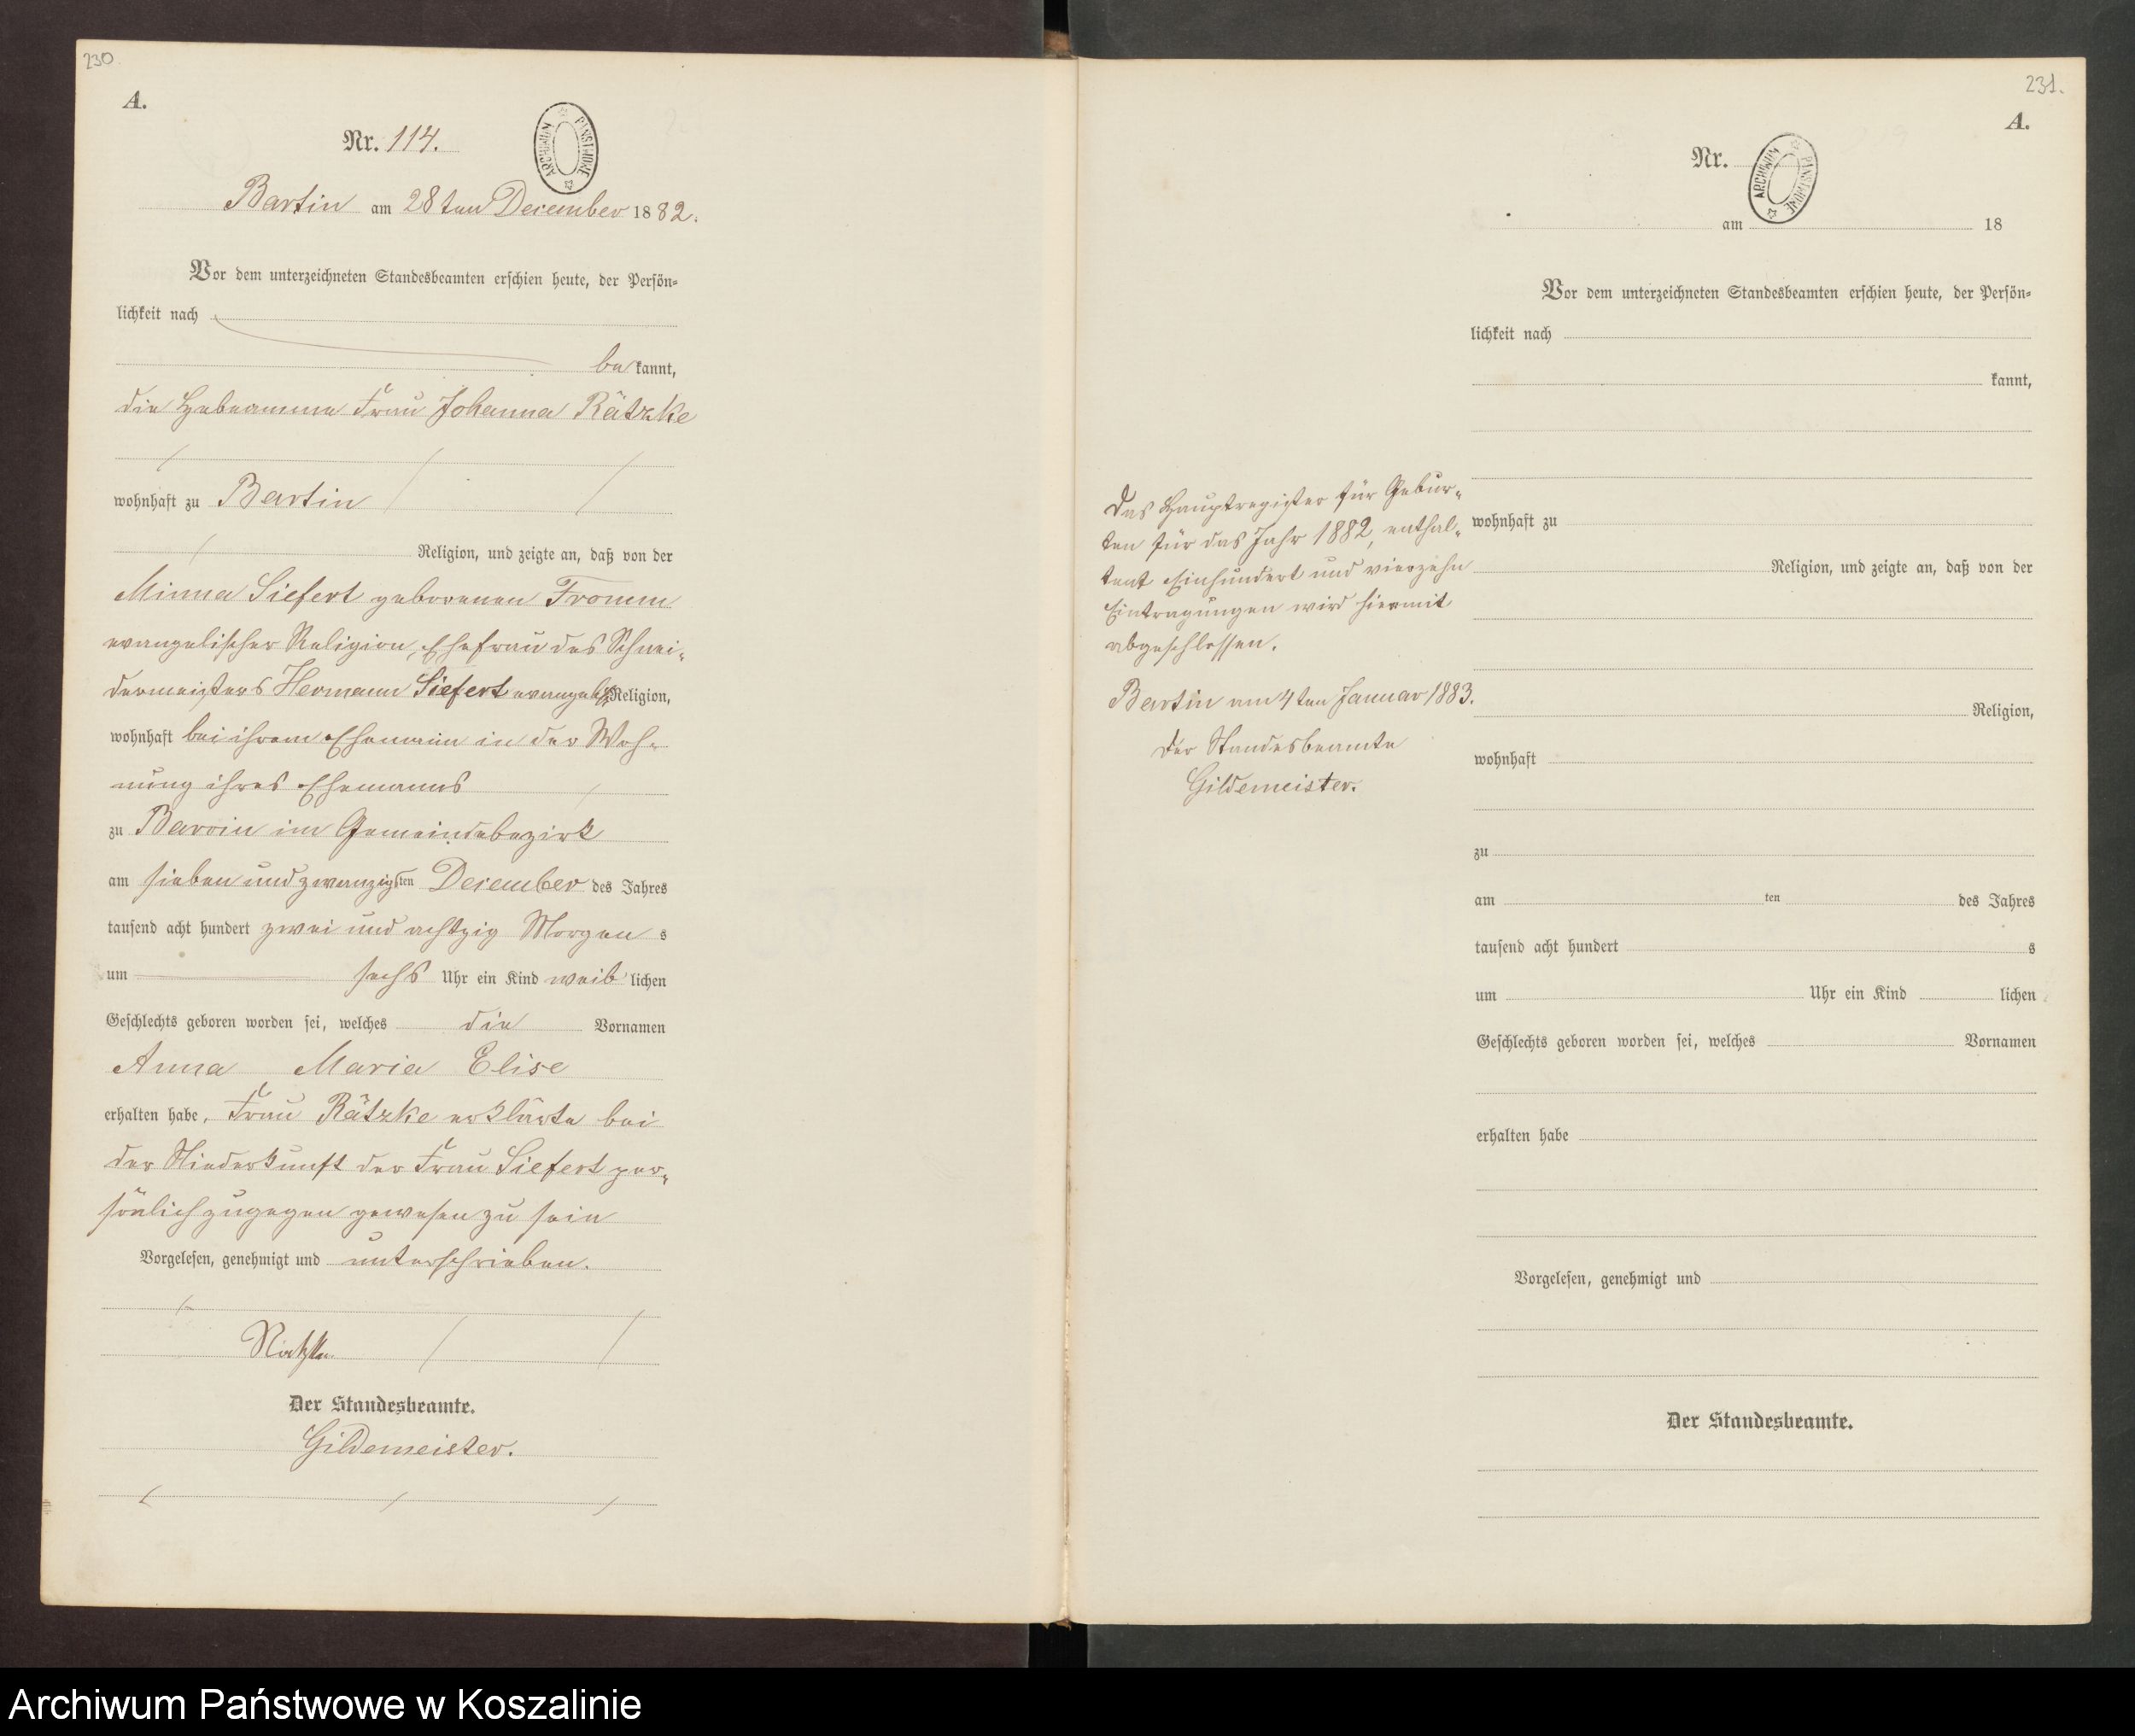 230
A.
Nr. 114.
ARCHIWUM PAŃSTWOWE
Bartin am 28ten December 1882.
Vor dem unterzeichneten Standesbeamten erschien heute, der Persön-
lichkeit nach
bekannt,
die Hebeamme Frau Johanna Rätzke
wohnhaft zu Bartin
Religion, und zeigte an, daß von der
Minna Siefert geborenen Fromm
evangelischer Religion, Ehefrau des Schnei-
dermeisters Hermann Siefert evangelisch Religion,
wohnhaft bei ihrem Ehemann in der Woh-
nung ihres Ehemanns
zu Barvin im Gemeindebezirk
am sieben und zwanzigsten December des Jahres
tausend acht hundert zwei und achtzig Morgens
um sechs Uhr ein Kind weiblichen
Geschlechts geboren worden sei, welches die Vornamen
Anna Maria Elise
erhalten habe. Frau Rätzke erklärte bei
der Niederkunft der Frau Siefert per-
sönlich zugegen gewesen zu sein
Vorgelesen, genehmigt und unterschrieben.
Der Standesbeamte.
Gildemeister.
231.
A.
Nr.
ARCHIWUM PAŃSTWOWE
am 18
Vor dem unterzeichneten Standesbeamten erschien heute, der Persön-
lichkeit nach
kannt,
wohnhaft zu
Religion, und zeigte an, daß von der
Religion,
wohnhaft
zu
am ten des Jahres
tausend acht hundert s
um Uhr ein Kind lichen
Geschlechts geboren worden sei, welches Vornamen
erhalten habe
Vorgelesen, genehmigt und
Der Standesbeamte.
Das Hauptregister für Gebur-
ten für das Jahr 1882, enthal-
tend Einhundert und vierzehn
Eintragungen wird hiermit
abgeschlossen.
Bartin am 4ten Januar 1883.
Der Standesbeamte
Gildemeister.
Archiwum Państwowe w Koszalinie